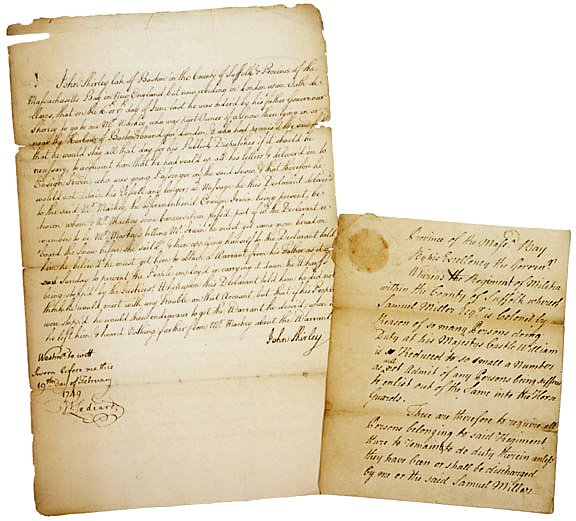 I John Shirley late of Boston in the County of Suffolk & Province of the
Massachusetts Bay in New England but now residing in London upon Oath de=
clares, that on the day of June last he was ordered by his father Governour
Shirley to go to Mr. Mackey who was part Owner of a Snow then lying in or
near the Harbour of Boston bound for London, & who had
that he would stay all that day for his Publick Dispatches if it should be
necessary, to acquaint him that he had read up all his letters & delivered em to
Ensign Irwin, who was going Passenger in the said Snow & that therefore he
would not detain his Vessell any longer; ye Message he this Declarant deliver'd
to the said Mr. Mackey the abovementioned Ensign Irwin being present, be
=tween whom & Mr. Mackey some Conversation passed, but ye Declarant re
=members Mr. Mackey's telling Mr. Irwin he must get some more hands on
board the Snow if
him he believ'd he must get him to obtain a Warrant from his Father as it
was Sunday, to prevent the People employed in carrying it down the Wharf
being stopped by the Justices: Whereupon this Declarant told him he did not
think he would meet with any trouble on that Account, but that if his People
were stopped he would then endeavour to get the Warrant he desired; upon
he left him & heard Nothing farther from Mr. Mackey about the Warrant
John Shirley
Westmr. to witt
Sworn before me this
19th. day of February
1749
T Lediard
Province of the Massa. Bay
By his Excellency the Governr.
Whereas the Regiment of Militia
within the County of Suffolk whereof
Samuel Miller Esqr. is Colonel by
Reason of so many Persons doing
Duty at his Majestys Castle William
is Reduced to so small a Number
as not Admit of any Persons being suffered
to enlist out of the Same into the Horse
Guards.
These are therefore to require all
Persons belonging to said Regiment
there to remain & do duty therein unless
they have been or shall be discharged
by me or the said Samuel Miller